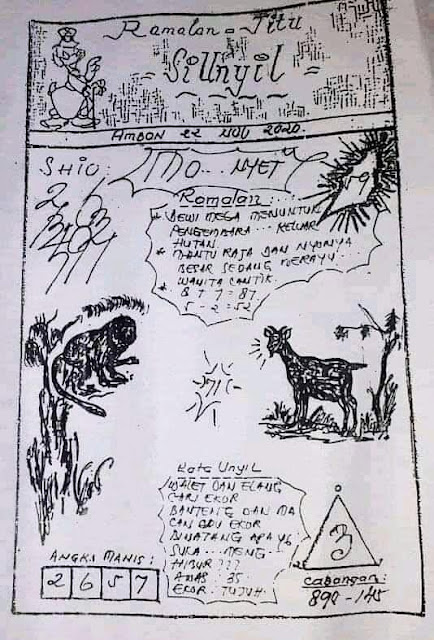 Ramalan - Jitu
Si Unyil
AMBON 22 NOV 2020
SHIO : MO... NYET
Ramalan :
* DEWI MEGA MENUNTUN
PENGEMBARA... KELUAR
HUTAN.
* MANTU RAJA DAN NYONYA
BESAR SEDANG MERAYU
* WANITA CANTIK.
8 + 7 = 87
5 - 2 = 52
Kata Unyil
WALET DAN ELANG
CARI EKOR
BANTENG DAN MA
CAN ADU EKOR
BINATANG APA YG
SUKA... MENG
HIBUR ???
AWAS : 35
EKOR. TUJUH.
ANGKA MANIS :
2 6 5 7
3
Cabangan :
890 - 145